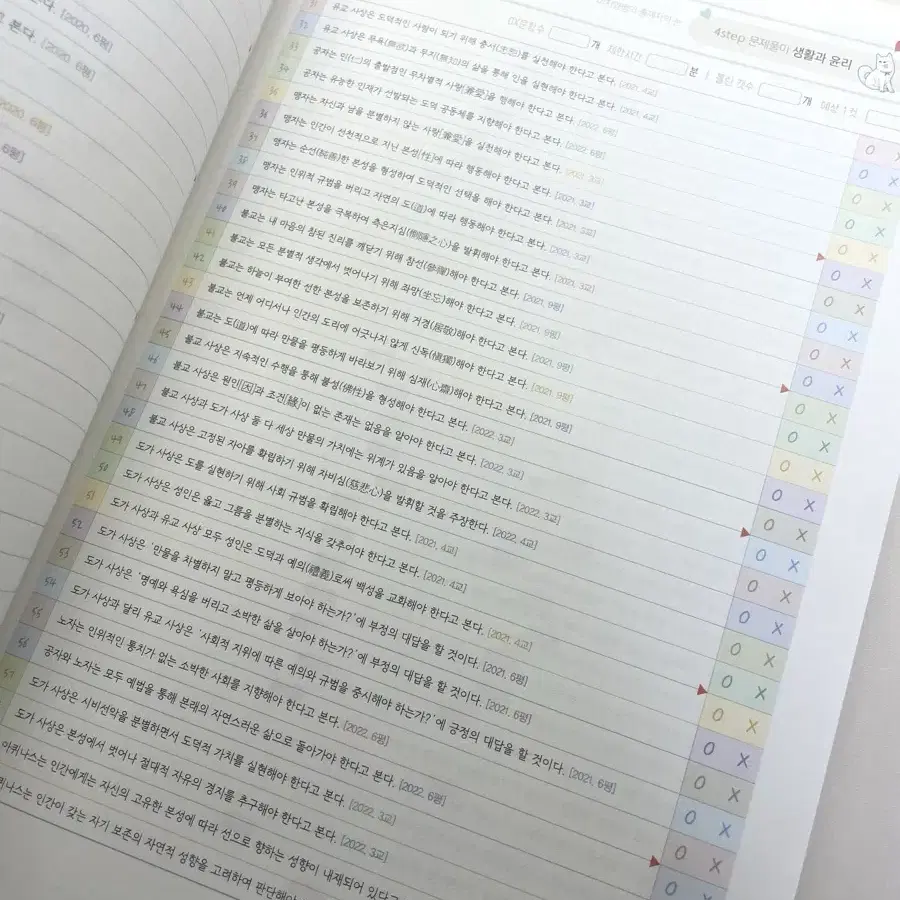 본다. [2020, 6평]
[2020, 6평]
2020, 6평]
6평]
4step 문제풀이 생활과 윤리
OX문항수 개 제한시간 분 | 틀린 갯수 개 예상 1컷
31 유교 사상은 도덕적인 사람이 되기 위해 충서(忠恕)를 실천해야 한다고 본다. [2021, 4교] O X
32 유교 사상은 무욕(無欲)과 무지(無知)의 삶을 통해 인을 실현해야 한다고 본다. [2021, 4교] O X
33 공자는 인(仁)의 출발점인 무차별적 사랑[兼愛]을 행해야 한다고 본다. [2022, 6평] O X
34 공자는 유능한 인재가 선발되는 도덕 공동체를 지향해야 한다고 본다. [2022, 6평] O X
35 맹자는 자신과 남을 분별하지 않는 사랑[兼愛]을 실천해야 한다고 본다. [2021, 3교] O X
36 맹자는 인간이 선천적으로 지닌 본성[性]에 따라 행동해야 한다고 본다. [2021, 3교] O X
37 맹자는 순선(純善)한 본성을 형성하여 도덕적인 선택을 해야 한다고 본다. [2021, 3교] O X
38 맹자는 인위적 규범을 버리고 자연의 도(道)에 따라 행동해야 한다고 본다. [2021, 3교] O X
39 맹자는 타고난 본성을 극복하여 측은지심(惻隱之心)을 발휘해야 한다고 본다. [2021, 3교] O X
40 불교는 내 마음의 참된 진리를 깨닫기 위해 참선(參禪)해야 한다고 본다. [2021, 9평] O X
41 불교는 모든 분별적 생각에서 벗어나기 위해 좌망(坐忘)해야 한다고 본다. [2021, 9평] O X
42 불교는 하늘이 부여한 선한 본성을 보존하기 위해 거경(居敬)해야 한다고 본다. [2021, 9평] O X
43 불교는 언제 어디서나 인간의 도리에 어긋나지 않게 신독(愼獨)해야 한다고 본다. [2021, 9평] O X
44 불교는 도(道)에 따라 만물을 평등하게 바라보기 위해 심재(心齋)해야 한다고 본다. [2021, 9평] O X
45 불교 사상은 지속적인 수행을 통해 불성(佛性)을 형성해야 한다고 본다. [2022, 3교] O X
46 불교 사상은 원인[因]과 조건[緣]이 없는 존재는 없음을 알아야 한다고 본다. [2022, 3교] O X
47 불교 사상과 도가 사상 둘 다 세상 만물의 가치에는 위계가 있음을 알아야 한다고 본다. [2022, 3교] O X
48 불교 사상은 고정된 자아를 확립하기 위해 자비심(慈悲心)을 발휘할 것을 주장한다. [2022, 4교] O X
49 도가 사상은 도를 실현하기 위해 사회 규범을 확립해야 한다고 본다. [2021, 4교] O X
50 도가 사상은 성인은 옳고 그름을 분별하는 지식을 갖추어야 한다고 본다. [2021, 4교] O X
51 도가 사상과 유교 사상 모두 성인은 도덕과 예의(禮義)로써 백성을 교화해야 한다고 본다. [2021, 4교] O X
52 도가 사상은 '만물을 차별하지 말고 평등하게 보아야 하는가?'에 부정의 대답을 할 것이다. [2021, 6평] O X
53 도가 사상은 '명예와 욕심을 버리고 소박한 삶을 살아야 하는가?'에 부정의 대답을 할 것이다. [2021, 6평] O X
54 도가 사상과 달리 유교 사상은 '사회적 지위에 따른 예의와 규범을 중시해야 하는가?'에 긍정의 대답을 할 것이다. [2021, 6평] O X
55 노자는 인위적인 통치가 없는 소박한 사회를 지향해야 한다고 본다. [2022, 6평] O X
56 공자와 노자는 모두 예법을 통해 본래의 자연스러운 삶으로 돌아가야 한다고 본다. [2022, 6평]
57 도가 사상은 시비선악을 분별하면서 도덕적 가치를 실현해야 한다고 본다. [2022, 3교]
도가 사상은 본성에서 벗어나 절대적 자유의 경지를 추구해야 한다고 본다. [2022, 3교]
아퀴나스는 인간에게는 자신의 고유한 본성에 따라 선으로 향하는 성향이 내재되어 있다고
퀴나스는 인간이 갖는 자기 보존의 자연적 성향을 고려하여 판단해야